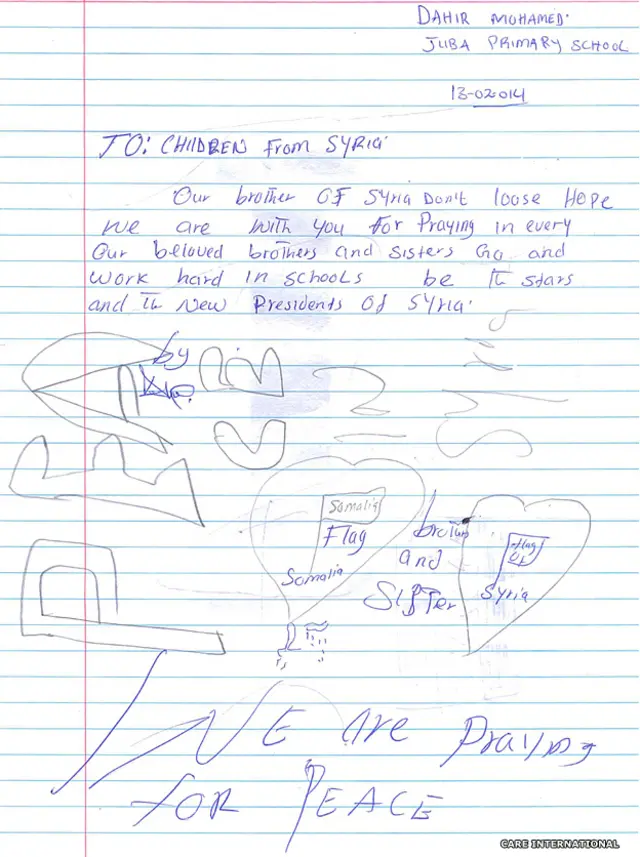 DAHIR MOHAMED.
JUBA PRIMARY SCHOOL
13-02-014
TO: CHILDREN From SYRIA
Our brother OF Syria Don't loose Hope
we are with you For Praying in every
Our beloved brothers and sisters Go and
work hard in schools be the stars
and the New Presidents of Syria.
by
Somalia
Flag
Somalia
brother
and
SISTER
Flag
OF
Syria
WE Are Praying
FOR PEACE
CARE INTERNATIONAL